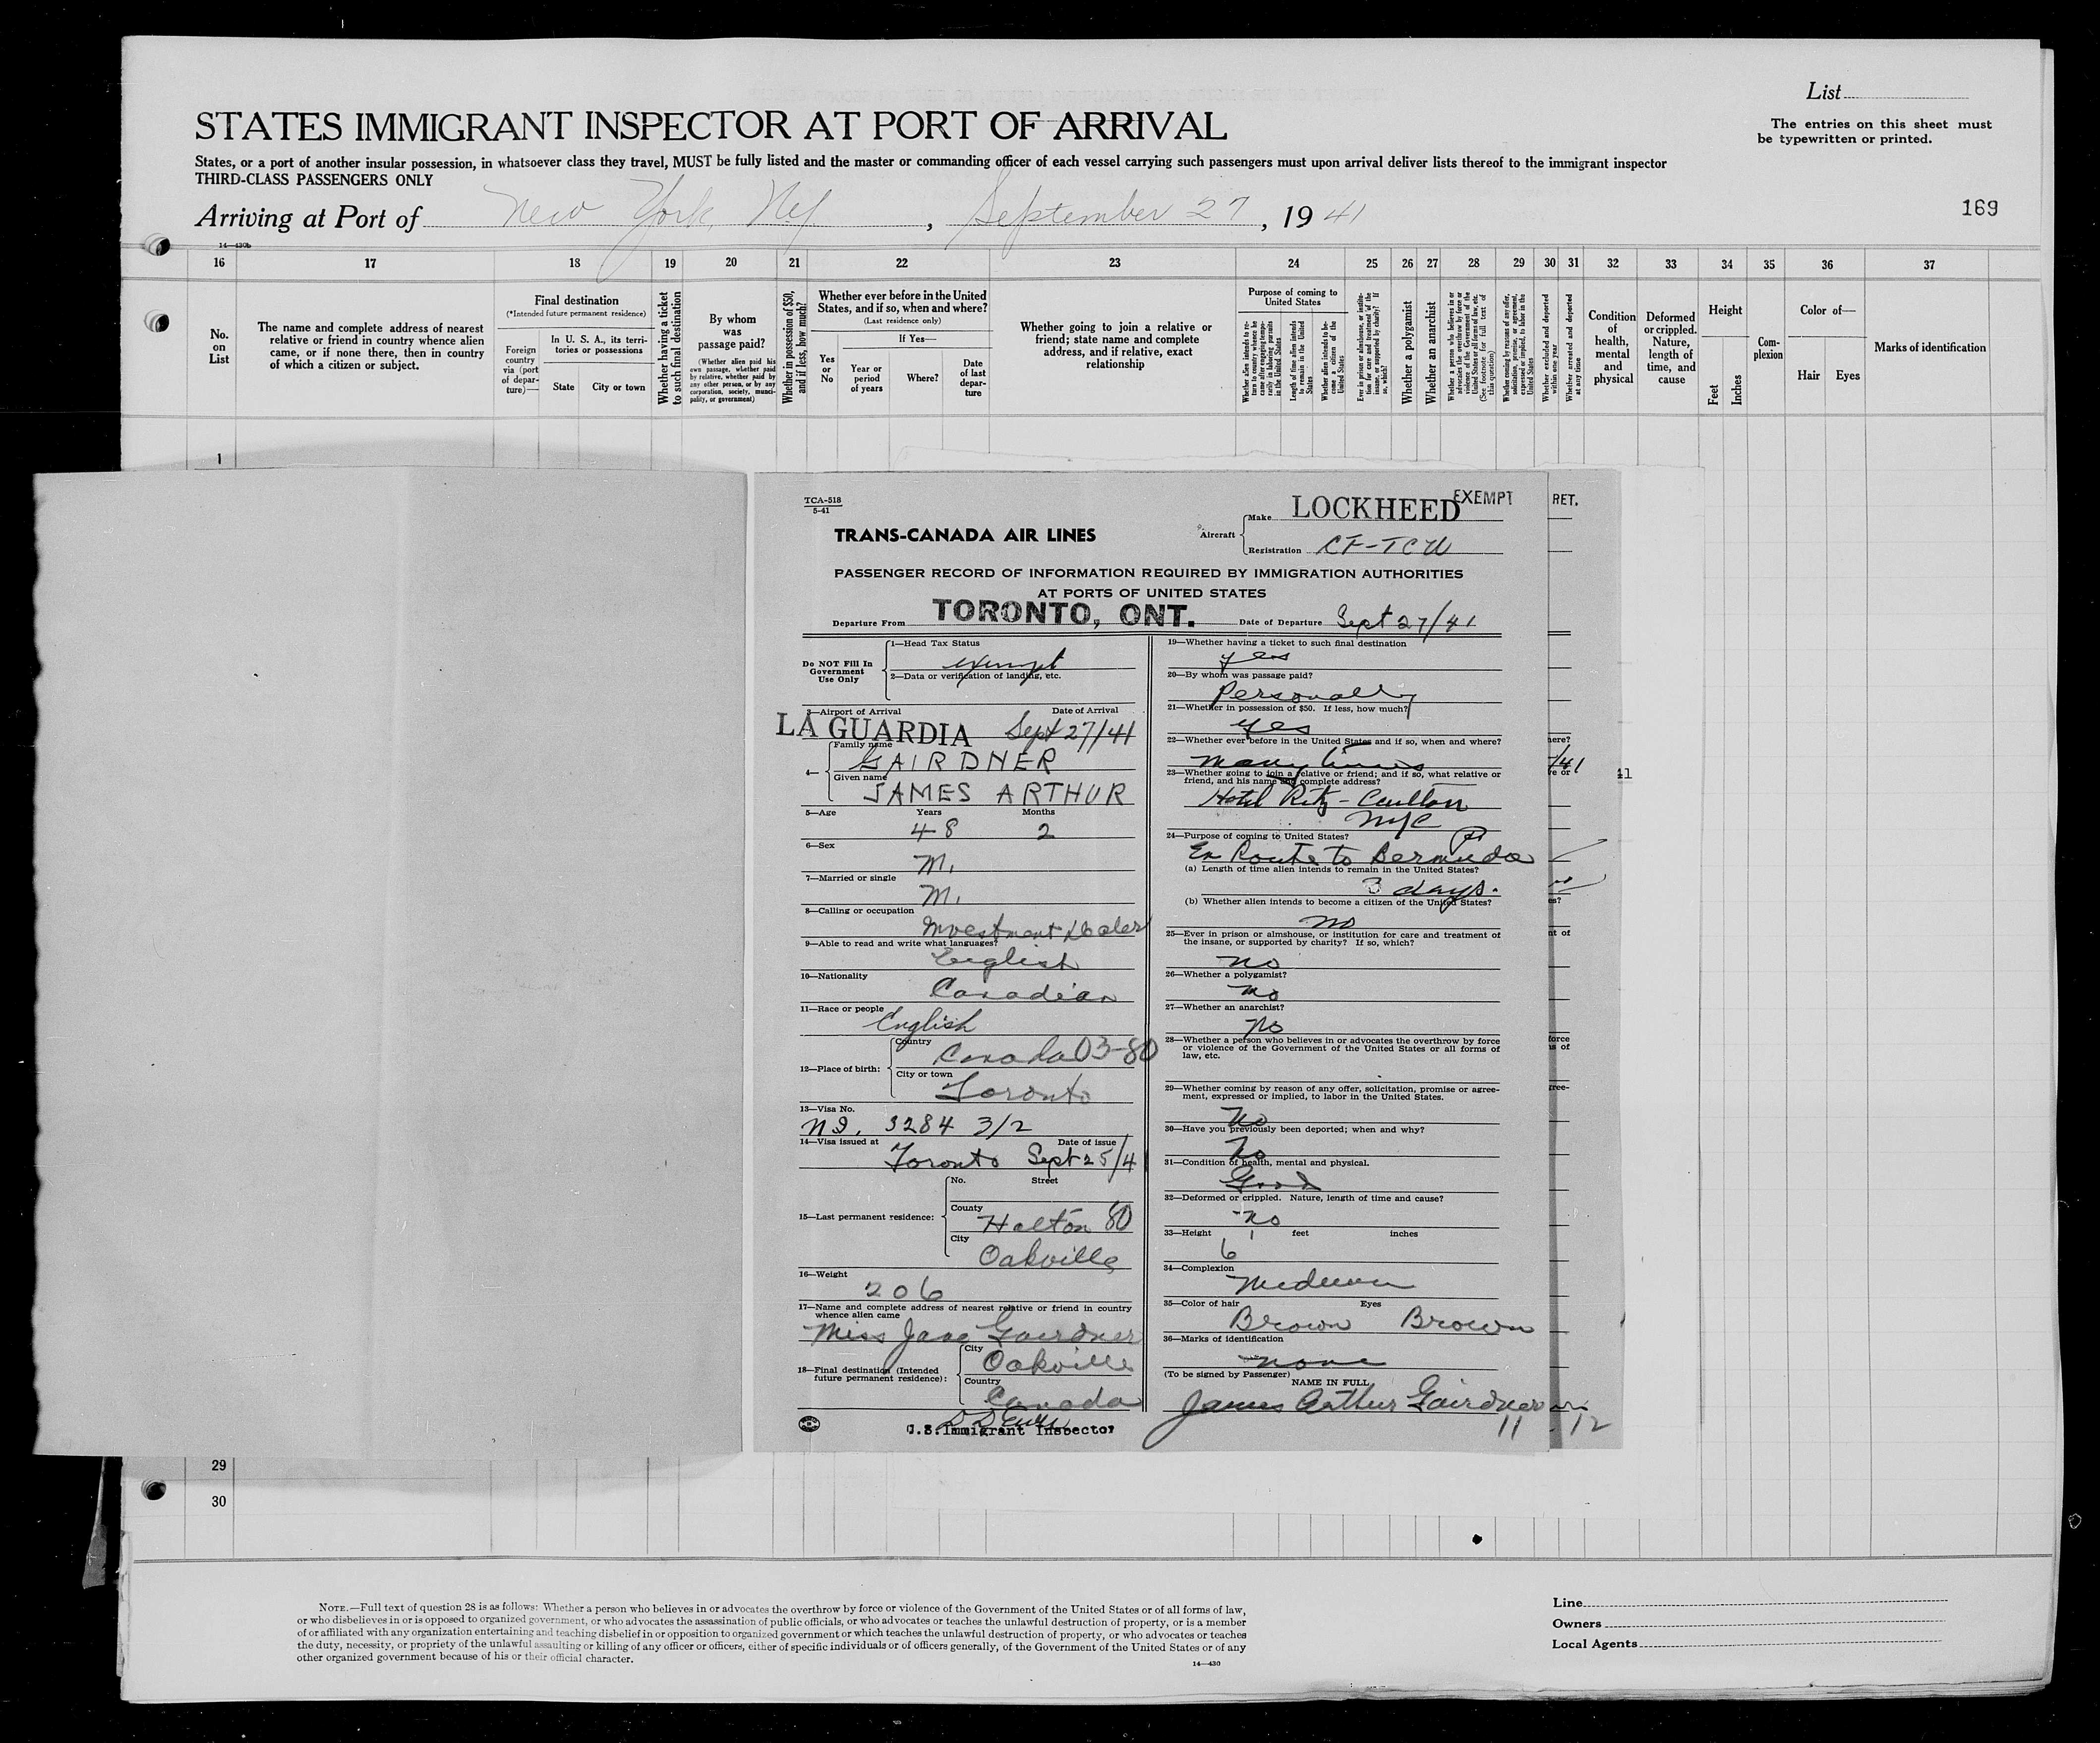 List
STATES IMMIGRANT INSPECTOR AT PORT OF ARRIVAL
The entries on this sheet must
be typewritten or printed.
States, or a port of another insular possession, in whatsoever class they travel, MUST be fully listed and the master or commanding officer of each vessel carrying such passengers must upon arrival deliver lists thereof to the immigrant inspector
THIRD-CLASS PASSENGERS ONLY
Arriving at Port of New York, NY, September 27, 1941
169
14—430b
16 17 18 19 20 21 22 23 24 25 26 27 28 29 30 31 32 33 34 35 36 37
No.
on
List
The name and complete address of nearest
relative or friend in country whence alien
came, or if none there, then in country
of which a citizen or subject.
Final destination
(*Intended future permanent residence)
Foreign
country
via (port
of depar-
ture)—
In U. S. A., its terri-
tories or possessions
State
City or town
Whether having a ticket
to such final destination
By whom
was
passage paid?
(Whether alien paid his
own passage, whether paid
by relative, whether paid by
any other person, or by any
corporation, society, munici-
pality, or government)
Whether in possession of $50,
and if less, how much?
Whether ever before in the United
States, and if so, when and where?
(Last residence only)
Yes
or
No
If Yes—
Year or
period
of years
Where?
Date
of last
depar-
ture
Whether going to join a relative or
friend; state name and complete
address, and if relative, exact
relationship
Purpose of coming to
United States
Whether alien intends to re-
turn to country whence he
came after engaging tempo-
rarily in laboring pursuits
in the United States
Length of time alien intends
to remain in the United
States
Whether alien intends to be-
come a citizen of the
United States
Ever in prison or almshouse, or institu-
tion for care and treatment of the
insane, or supported by charity? If
so, which?
Whether a polygamist
Whether an anarchist
Whether a person who believes in or
advocates the overthrow by force or
violence of the Government of the
United States or all forms of law, etc.
(See footnote for full text of
this question)
Whether coming by reasons of any offer,
solicitation, promise, or agreement,
expressed or implied, to labor in the
United States
Whether excluded and deported
within one year
Whether arrested and deported
at any time
Condition
of
health,
mental
and
physical
Deformed
or crippled.
Nature,
length of
time, and
cause
Height
Feet
Inches
Com-
plexion
Color of—
Hair
Eyes
Marks of identification
1
TCA-518
5-41
TRANS-CANADA AIR LINES
Aircraft
Make LOCKHEED
EXEMPT
RET.
Registration CF-TCW
PASSENGER RECORD OF INFORMATION REQUIRED BY IMMIGRATION AUTHORITIES
AT PORTS OF UNITED STATES
Departure From TORONTO, ONT. Date of Departure Sept 27/41
Do NOT Fill In
Government
Use Only
1—Head Tax Status
exempt
2—Data or verification of landing, etc.
3—Airport of Arrival Date of Arrival
LA GUARDIA Sept 27/41
4—
Family name
GAIRDNER
Given name
JAMES ARTHUR
5—Age Years Months
48 2
6—Sex
M.
7—Married or single
M.
8—Calling or occupation
Investment Dealer
9—Able to read and write what languages?
English
10—Nationality
Canadian
11—Race or people
English
12—Place of birth:
Country
Canada 03-80
City or town
Toronto
13—Visa No.
3284 3/2
14—Visa issued at Date of issue
Toronto Sept 25/4
15—Last permanent residence:
No. Street
County
Halton 80
City
Oakville
16—Weight
206
17—Name and complete address of nearest relative or friend in country
whence alien came
Miss Jane Gairdner
18—Final destination (Intended
future permanent residence):
City
Oakville
Country
Canada
U.S. Immigrant Inspector
19—Whether having a ticket to such final destination
yes
20—By whom was passage paid?
Personally
21—Whether in possession of $50. If less, how much?
yes
22—Whether ever before in the United States and if so, when and where?
many times
23—Whether going to join a relative or friend; and if so, what relative or
friend, and his name and complete address?
Hotel Ritz-Carlton
NYC
24—Purpose of coming to United States?
En Route to Bermuda
(a) Length of time alien intends to remain in the United States?
3 days.
(b) Whether alien intends to become a citizen of the United States?
no
25—Ever in prison or almshouse, or institution for care and treatment of
the insane, or supported by charity? If so, which?
no
26—Whether a polygamist?
no
27—Whether an anarchist?
No
28—Whether a person who believes in or advocates the overthrow by force
or violence of the Government of the United States or all forms of
law, etc.
29—Whether coming by reason of any offer, solicitation, promise or agree-
ment, expressed or implied, to labor in the United States.
No
30—Have you previously been deported; when and why?
No
31—Condition of health, mental and physical.
Good
32—Deformed or crippled. Nature, length of time and cause?
no
33—Height feet inches
6'
34—Complexion
Medium
35—Color of hair Eyes
Brown Brown
36—Marks of identification
none
(To be signed by Passenger)
NAME IN FULL
James Arthur Gairdner
11
12
here?
/41
re or
41
es?
nt of
force
ns of
gree-
29
30
NOTE.—Full text of question 28 is as follows: Whether a person who believes in or advocates the overthrow by force or violence of the Government of the United States or of all forms of law,
or who disbelieves in or is opposed to organized government, or who advocates the assassination of public officials, or who advocates or teaches the unlawful destruction of property, or is a member
of or affiliated with any organization entertaining and teaching disbelief in or opposition to organized government or which teaches the unlawful destruction of property, or who advocates or teaches
the duty, necessity, or propriety of the unlawful assaulting or killing of any officer or officers, either of specific individuals or of officers generally, of the Government of the United States or of any
other organized government because of his or their official character.
14—430
Line
Owners
Local Agents